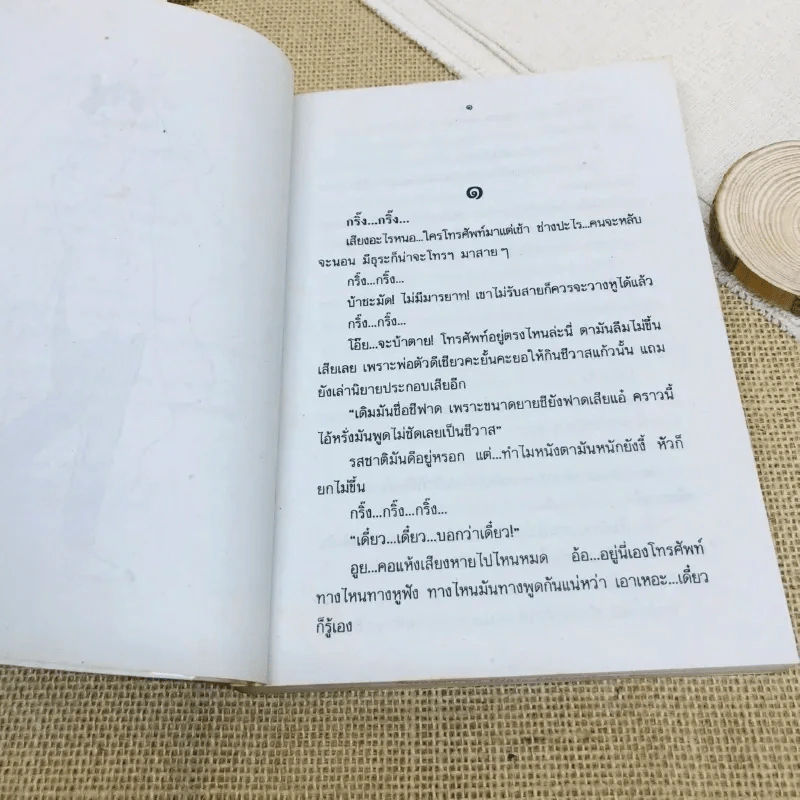 ๑
๑
กริ๊ง...กริ๊ง...
เสียงอะไรหนอ...ใครโทรศัพท์มาแต่เช้า ช่างปะไร...คนจะหลับ
จะนอน มีธุระก็น่าจะโทรฯ มาสายๆ
กริ๊ง...กริ๊ง...
บ้าชะมัด! ไม่มีมารยาท! เขาไม่รับสายก็ควรจะวางหูได้แล้ว
กริ๊ง...กริ๊ง...
โอ๊ย...จะบ้าตาย! โทรศัพท์อยู่ตรงไหนล่ะนี่ ตามันลืมไม่ขึ้น
เสียเลย เพราะพ่อตัวดีเชียวคะยั้นคะยอให้กินชีวาสแก้วนั้น แถม
ยังเล่านิยายประกอบเสียอีก
“เดิมมันชื่อชีฟาด เพราะขนาดยายชียังฟาดเสียแอ๋ คราวนี้
ไอ้หรั่งมันพูดไม่ชัดเลยเป็นชีวาส”
รสชาติมันดีอยู่หรอก แต่...ทำไมหนังตามันหนักยังงี้ หัวก็
ยกไม่ขึ้น
กริ๊ง...กริ๊ง...กริ๊ง...
“เดี๋ยว...เดี๋ยว...บอกว่าเดี๋ยว!”
อูย...คอแห้งเสียงหายไปไหนหมด อ้อ...อยู่นี่เองโทรศัพท์
ทางไหนทางหูฟัง ทางไหนมันทางพูดกันแน่หว่า เอาเหอะ...เดี๋ยว
ก็รู้เอง